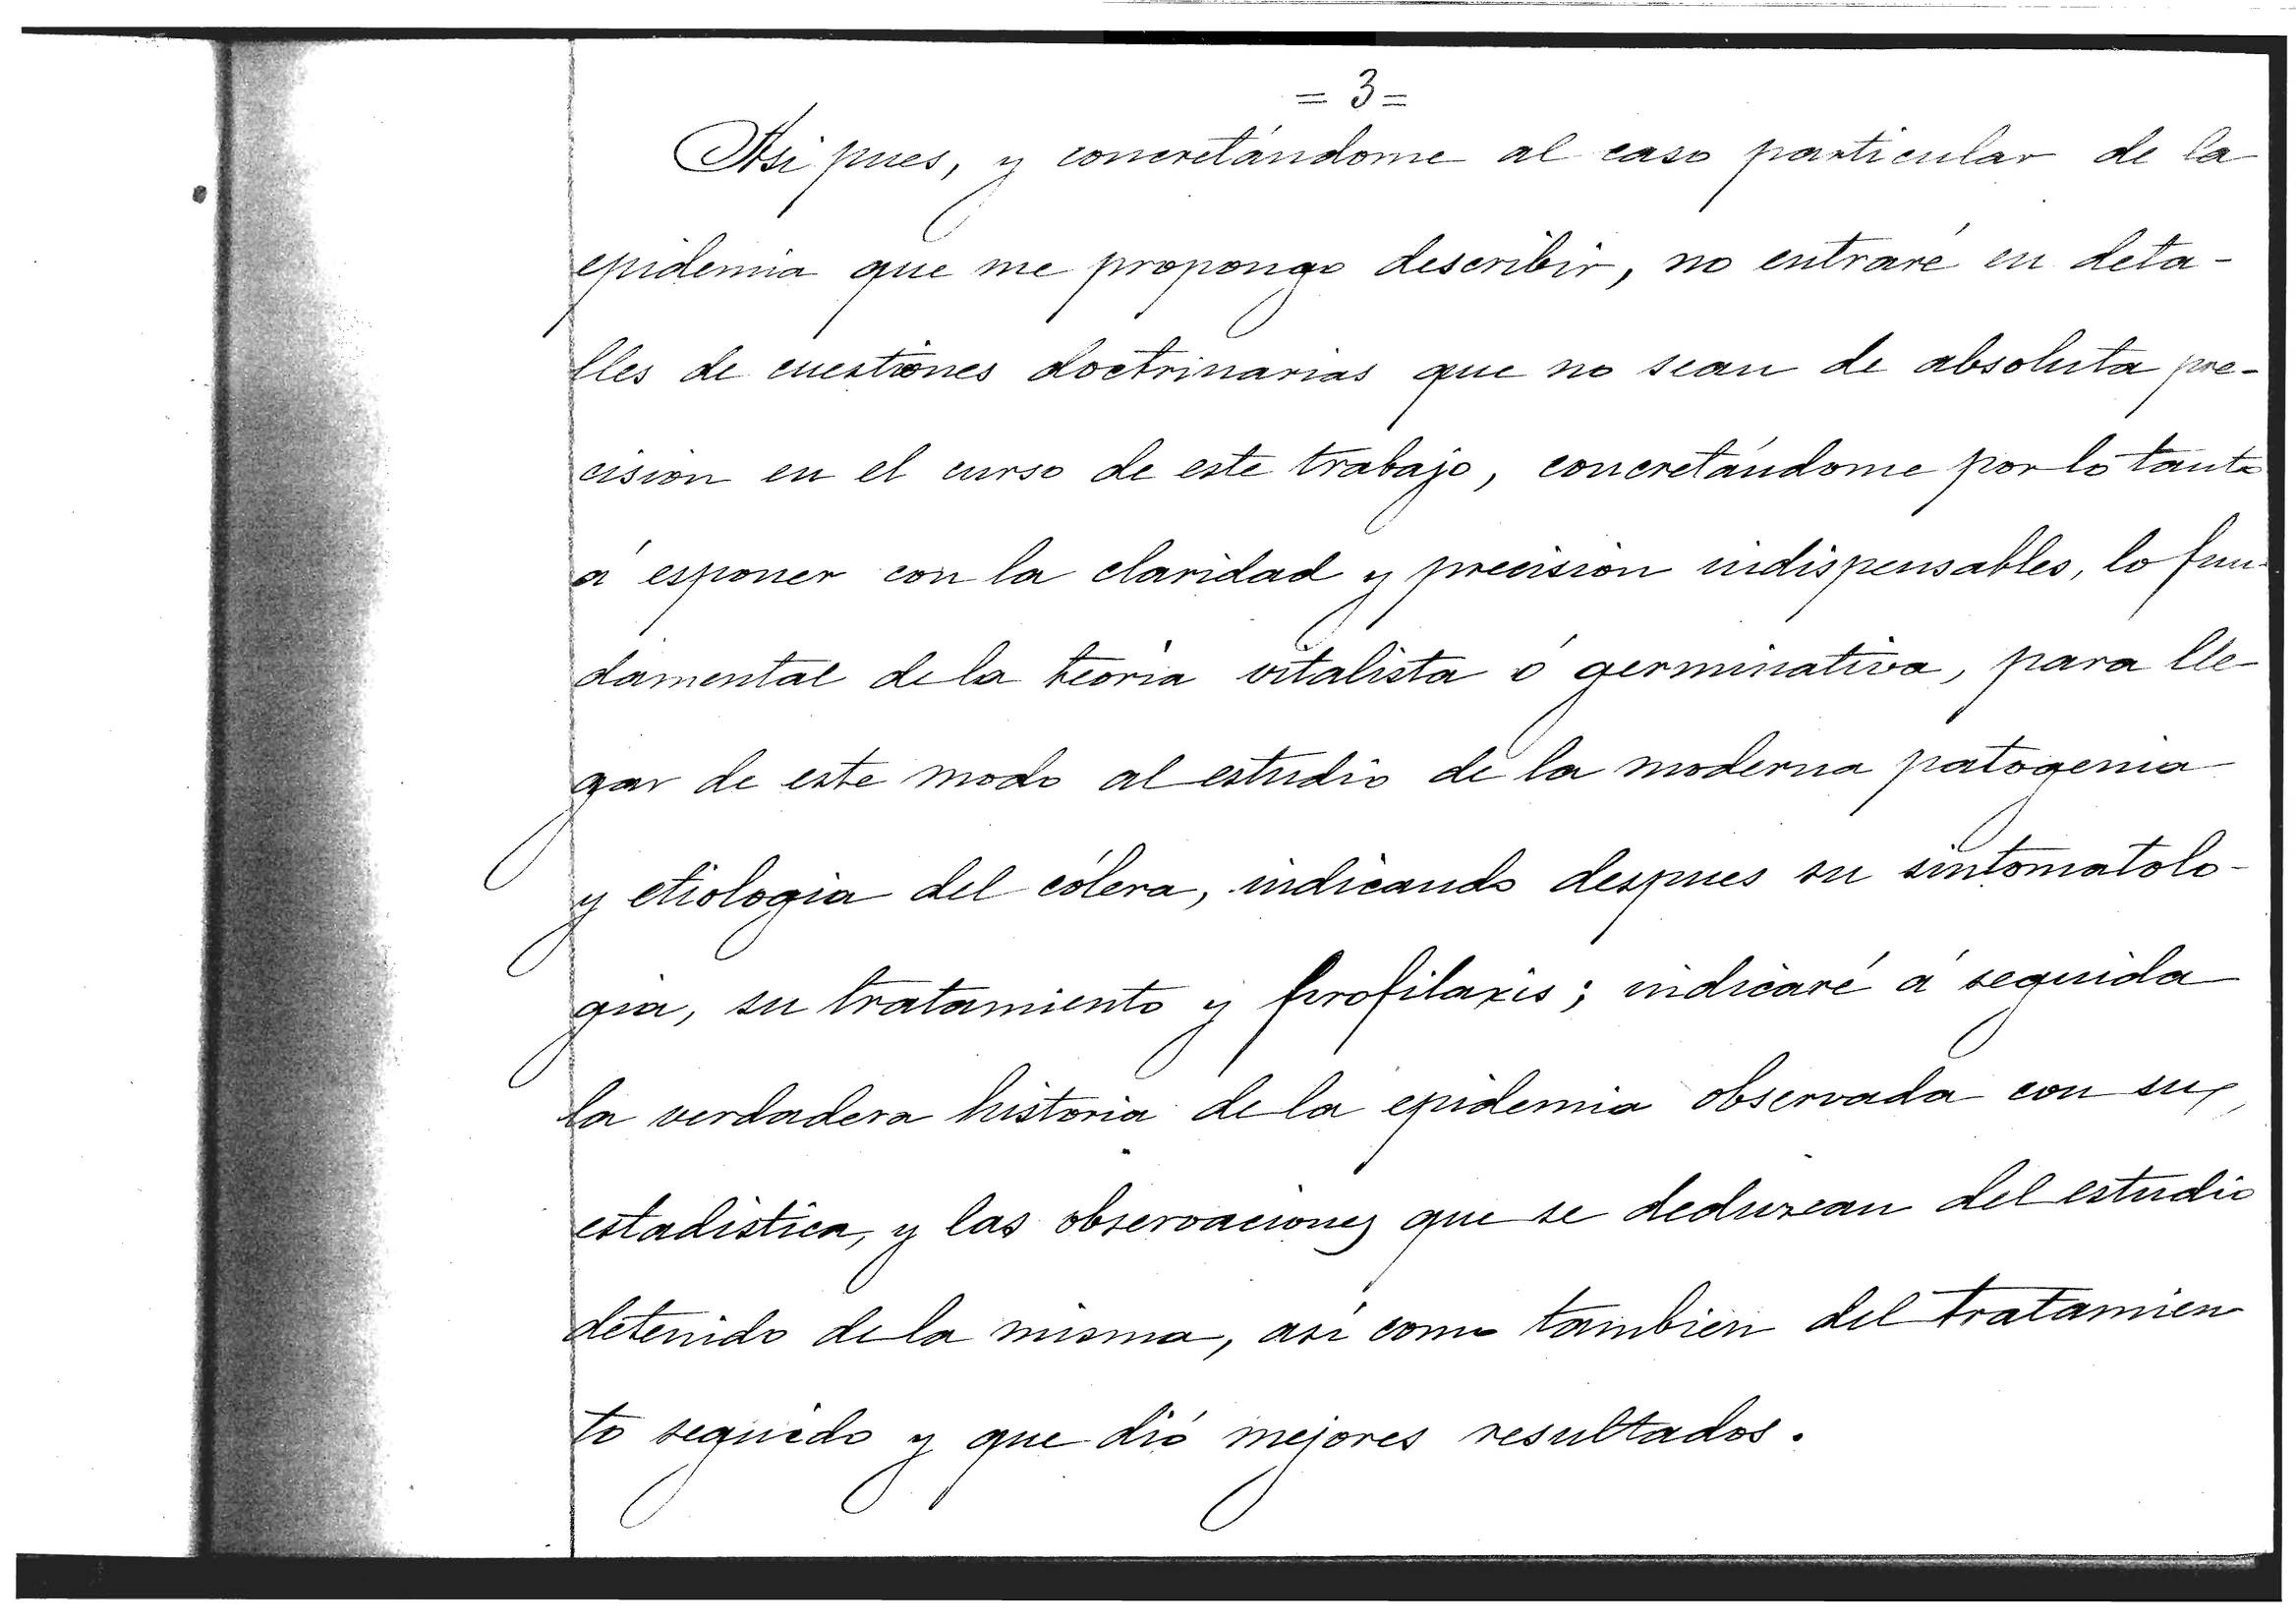 = 3 =
Asi pues, y concretándome al caso particular de la
epidemia que me propongo describir, no entraré en deta-
lles de cuestiones doctrinarias que no sean de absoluta pre-
cision en el curso de este trabajo, concretándome por lo tanto
á esponer con la claridad y precision indispensables, lo fun-
damental de la teoria vitalista ó germinativa, para lle-
gar de este modo al estudio de la moderna patogenia
y etiologia del cólera, indicando despues su sintomatolo-
gia, su tratamiento y profilaxis; indicaré á seguida
la verdadera historia de la epidemia observada con su
estadistica, y las observaciones que se deduzcan del estudio
detenido de la misma, asi como tambien del tratamien
to seguido y que dió mejores resultados.